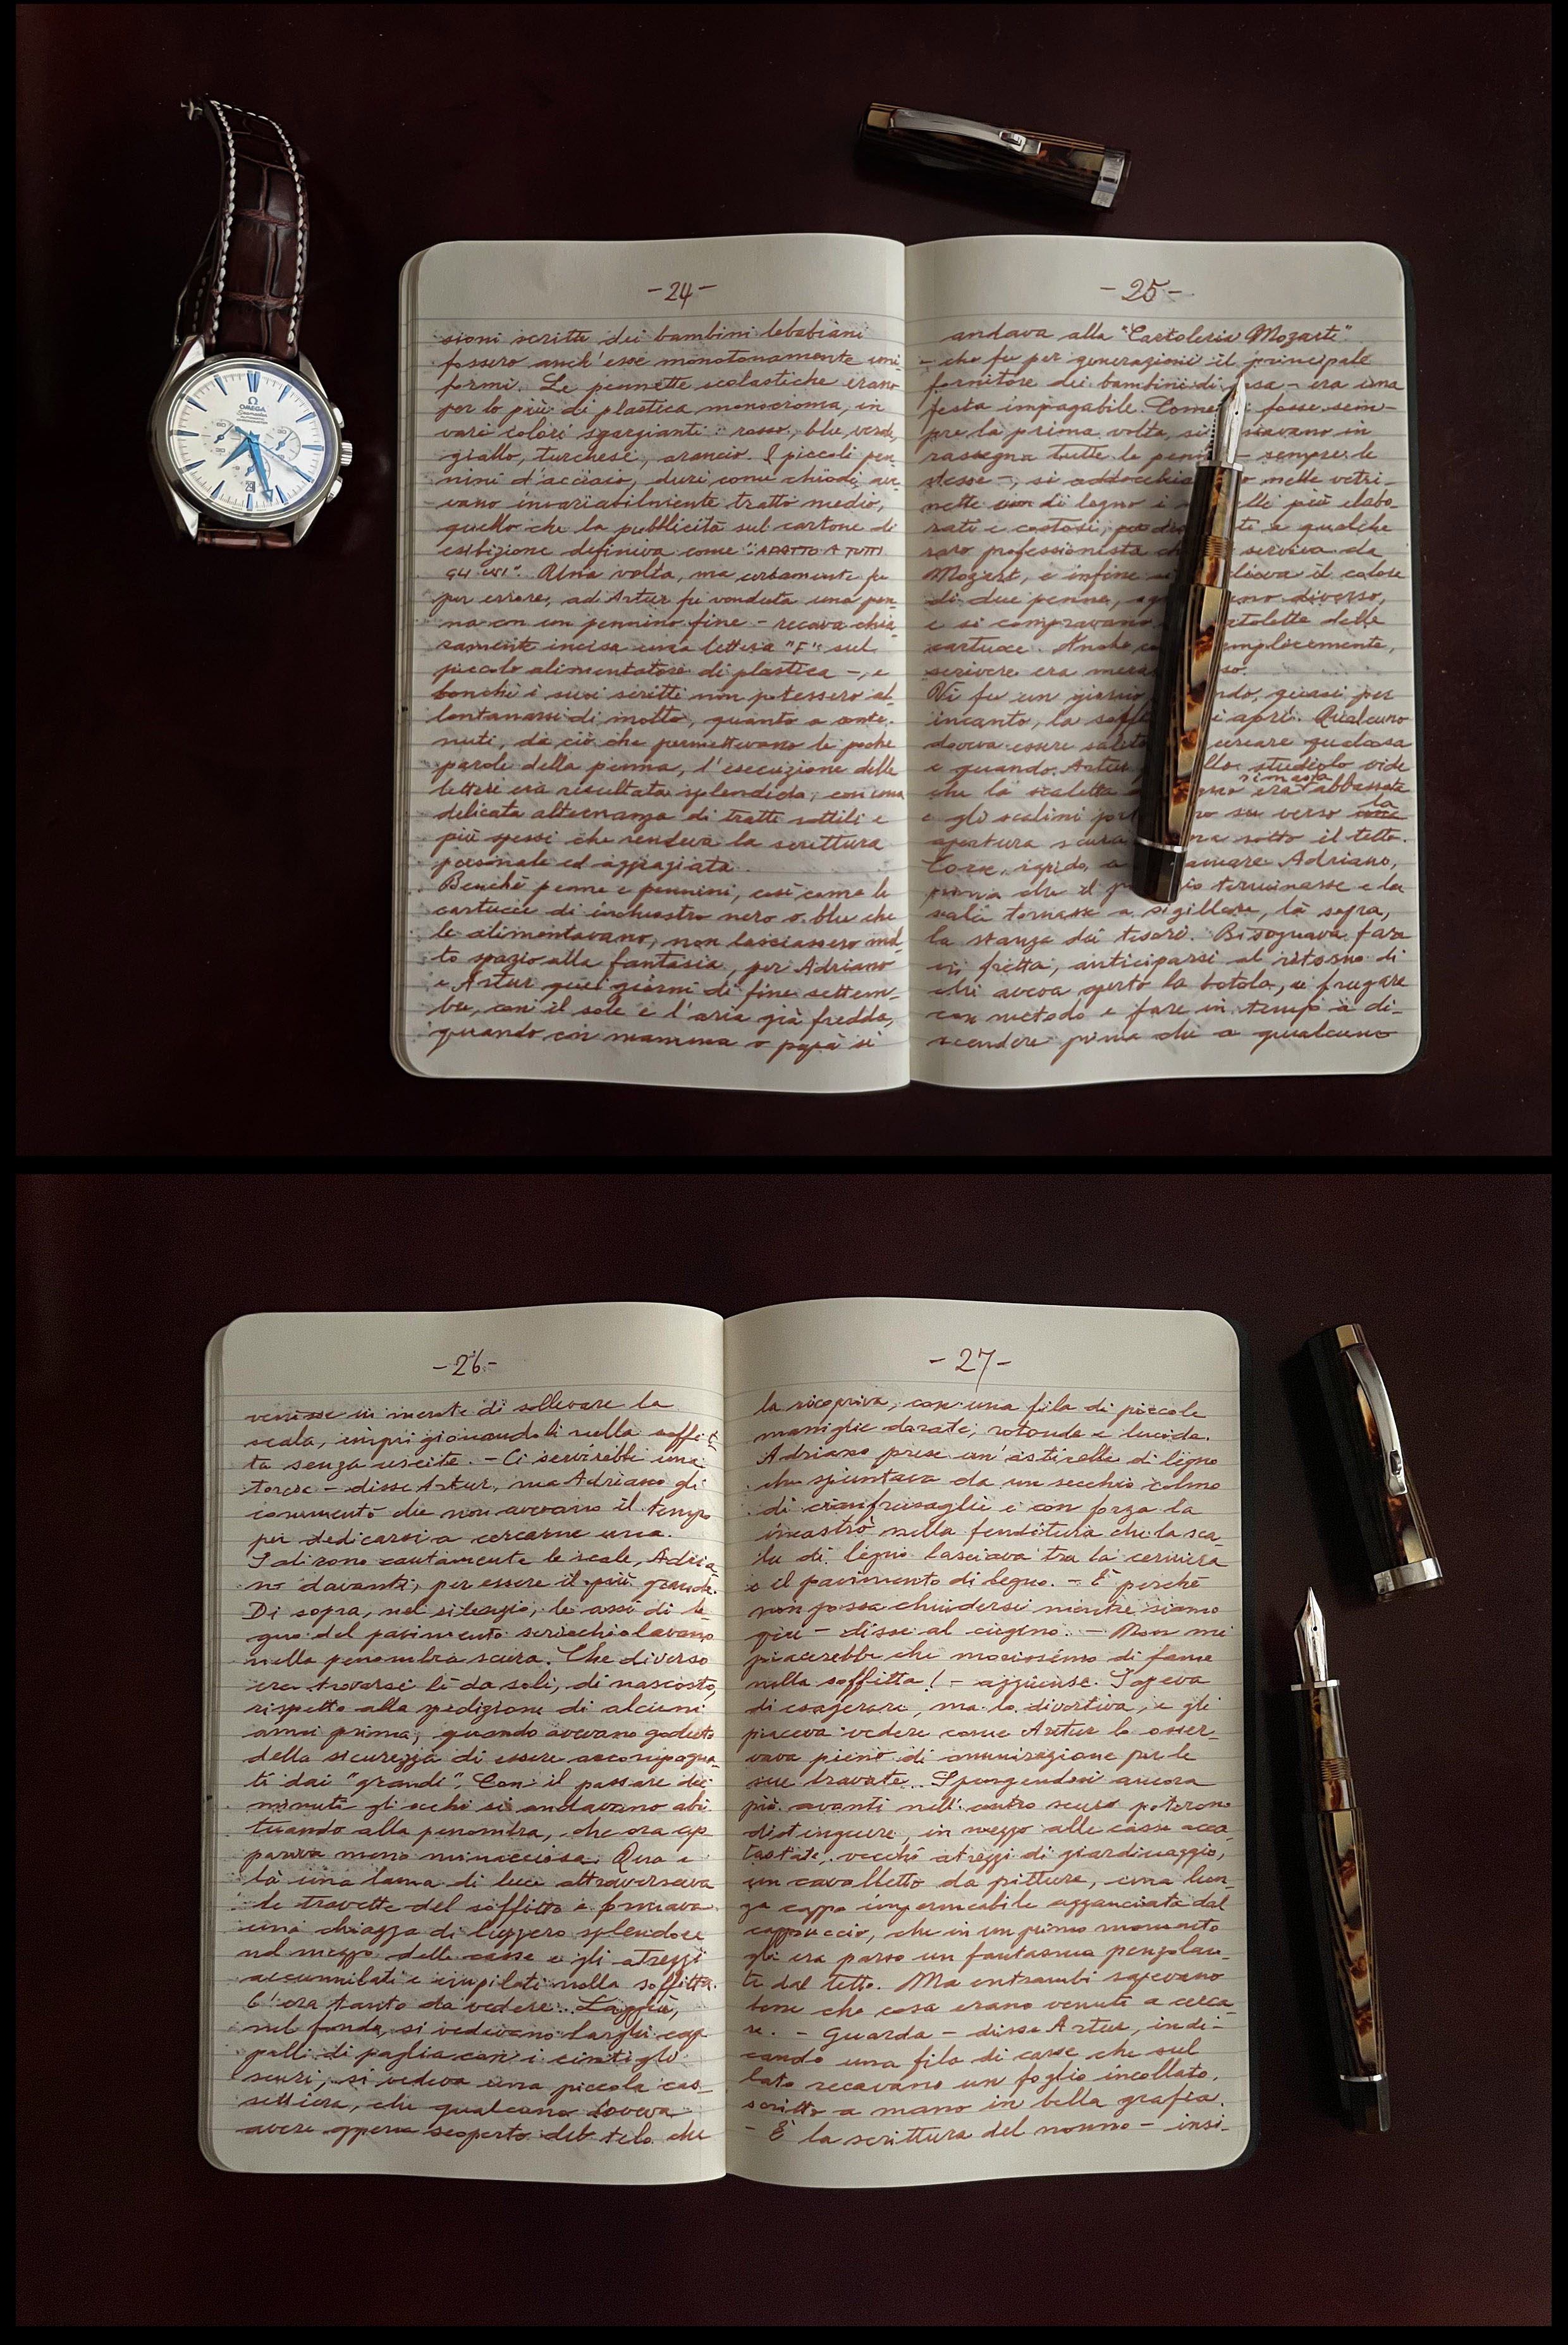 OMEGA
Seamaster
29
-24-
sioni scritte dei bambini
fossero anch'esse monotonamente uni-
formi. Le pennette scolastiche erano
per lo più di plastica monocroma, in
vari colori sgargianti: rosso, blu, verde,
giallo, turchese, arancio. I piccoli pen-
nini d'acciaio, duri come chiodi, ave-
vano invariabilmente tratto medio,
quello che la pubblicità sul cartone di
esibizione definiva come "ADATTO A TUTTI
GLI USI". Una volta, ma certamente fu
per errore, ad Artur fu venduta una pen-
na con un pennino fine - recava chia-
ramente incisa una lettera "F" sul
piccolo alimentatore di plastica -, e
benché i suoi scritti non potessero al-
lontanarsi di molto, quanto a conte-
nuti, da ciò che permettevano le poche
parole della penna, l'esecuzione delle
lettere era risultata splendida, con una
delicata alternanza di tratti sottili e
più spessi che rendeva la scrittura
personale ed aggraziata.
Benché penne e pennini, così come le
cartucce di inchiostro nero o blu che
le alimentavano, non lasciassero mol-
to spazio alla fantasia, per Adriano
e Artur quei giorni di fine settem-
bre, con il sole e l'aria già fredda,
quando con mamma o papà si
-25-
andava alla "Cartoleria Mozart"
- che fu per generazioni il principale
fornitore dei bambini di - era una
festa impagabile. Come fosse sem-
pre la prima volta, si passavano in
rassegna tutte le penne - sempre le
stesse -, si nelle vetri-
nette di legno i più elabo-
rati e costosi, a qualche
raro professionista serviva da
Mozart, e infine il colore
di due penne, diverso,
e si compravano delle
cartucce. Anche semplicemente,
scrivere era
Vi fu un giorno quasi per
incanto, la aprì. Qualcuno
doveva essere salito cercare qualcosa
e quando Artur studiolo vide
rimasta
che la scaletta era abbassata
la
e gli scalini su verso
apertura scura sotto il tetto.
Corse, rapido, a chiamare Adriano,
prima che il terminasse e la
scala tornasse a sigillare, là sopra,
la stanza dei tesori. Bisognava fare
in fretta, anticiparsi al ritorno di
chi aveva aperto la botola, e frugare
con metodo e fare in tempo a di-
scendere prima che a qualcuno
-26-
venisse in mente di sollevare la
scala, imprigionandoli nella soffit-
ta senza uscite. - Ci servirebbe una
torcia - disse Artur, ma Adriano gli
che non avevano il tempo
per dedicarsi a cercarne una.
Salirono cautamente le scale, Adria-
no davanti, per essere il più grande.
Di sopra, nel silenzio, le assi di le-
gno del pavimento scricchiolavano
nella penombra scura. Che diverso
era trovarsi lì da soli, di nascosto,
rispetto alla spedizione di alcuni
anni prima, quando avevano goduto
della sicurezza di essere accompagna-
ti dai "grandi". Con il passare dei
minuti gli occhi si andavano abi-
tuando alla penombra, che ora ap-
pariva meno minacciosa. Qua e
là una lama di luce attraversava
le travette del soffitto e formava
una chiazza di leggero splendore
nel mezzo delle casse e gli attrezzi
accumulati e impilati nella soffitta.
C'era tanto da vedere. Laggiù,
nel fondo, si vedevano larghi cap-
pelli di paglia con i
scuri, si vedeva una piccola cas-
settiera, che qualcuno doveva
avere appena scoperto del telo che
-27-
la ricopriva, con una fila di piccole
maniglie dorate, rotonde e lucide.
Adriano prese un'asticella di legno
che spuntava da un secchio colmo
di cianfrusaglie e con forza la
incastrò nella fenditura che la sca-
la di legno lasciava tra la cerniera
e il pavimento di legno. - È perché
non possa chiudersi mentre siamo
qui - disse al cugino. - Non mi
piacerebbe che morissimo di fame
nella soffitta! - aggiunse. Sapeva
di esagerare, ma lo divertiva, e gli
piaceva vedere come Artur lo osser-
vava pieno di ammirazione per le
sue trovate. Spingendosi ancora
più avanti nell'antro scuro poterono
distinguere, in mezzo alle casse acca-
tastate, vecchi attrezzi di giardinaggio,
un cavalletto da pittura, una lun-
ga cappa impermeabile agganciata dal
cappuccio, che in un primo momento
gli era parso un fantasma penzolan-
te dal tetto. Ma entrambi sapevano
bene che cosa erano venuti a cerca-
re. - Guarda - disse Artur, indi-
cando una fila di casse che sul
lato recavano un foglio incollato,
scritto a mano in bella grafia.
- È la scrittura del nonno - insi-